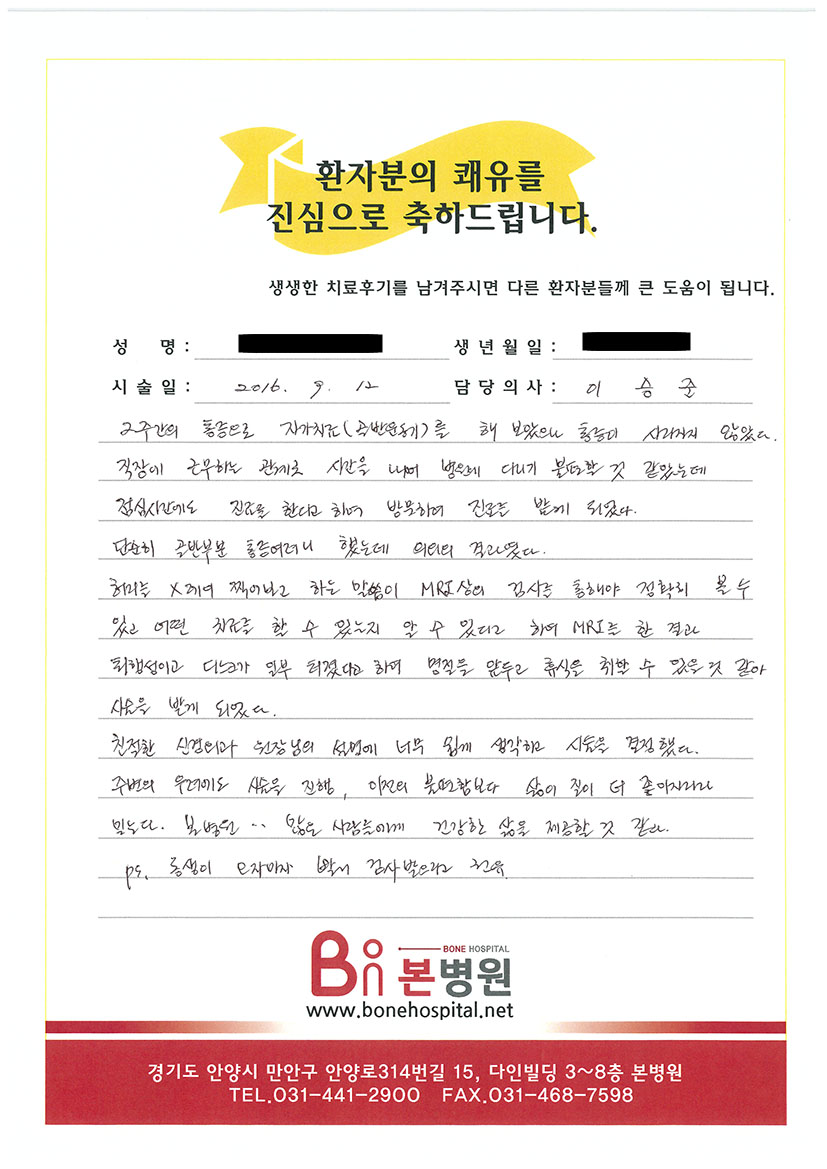 환자분의 쾌유를
진심으로 축하드립니다.
생생한 치료후기를 남겨주시면 다른 환자분들께 큰 도움이 됩니다.
성 명 : 생년월일 :
시술일 : 2016. 9. 12 담당의사 : 이승준
2주간의 통증으로 자가치료(골반운동기)를 해 보았으나 통증이 사라지지 않았다.
직장에 근무하는 관계로 시간을 내어 병원에 다니기 불편할 것 같았는데
점심시간에도 진료를 한다고 하여 방문하여 진료를 받게 되었다.
단순히 골반부분 통증이려니 했는데 의외의 결과였다.
허리를 X레이 찍어보고 하는 말씀이 MRI상의 검사를 통해야 정확히 볼 수
있고 어떤 치료를 할 수 있는지 알 수 있다고 하여 MRI를 한 결과
퇴행성이고 디스크가 일부 터졌다고 하여 명절을 앞두고 휴식을 취할 수 있을 것 같아
시술을 받게 되었다.
친절한 신경외과 원장님의 설명에 너무 쉽게 생각하고 시술을 결정했다.
주변의 우려에도 시술을 진행, 이전의 불편함보다 삶의 질이 더 좋아지리라
믿는다. 본병원 ·· 많은 사람들에게 건강한 삶을 제공할 것 같다.
ps. 동생이 오자마자 빨리 검사받으라고 권유.
Bon BONE HOSPITAL 본병원
www.bonehospital.net
경기도 안양시 만안구 안양로314번길 15, 다인빌딩 3~8층 본병원
TEL.031-441-2900 FAX.031-468-7598